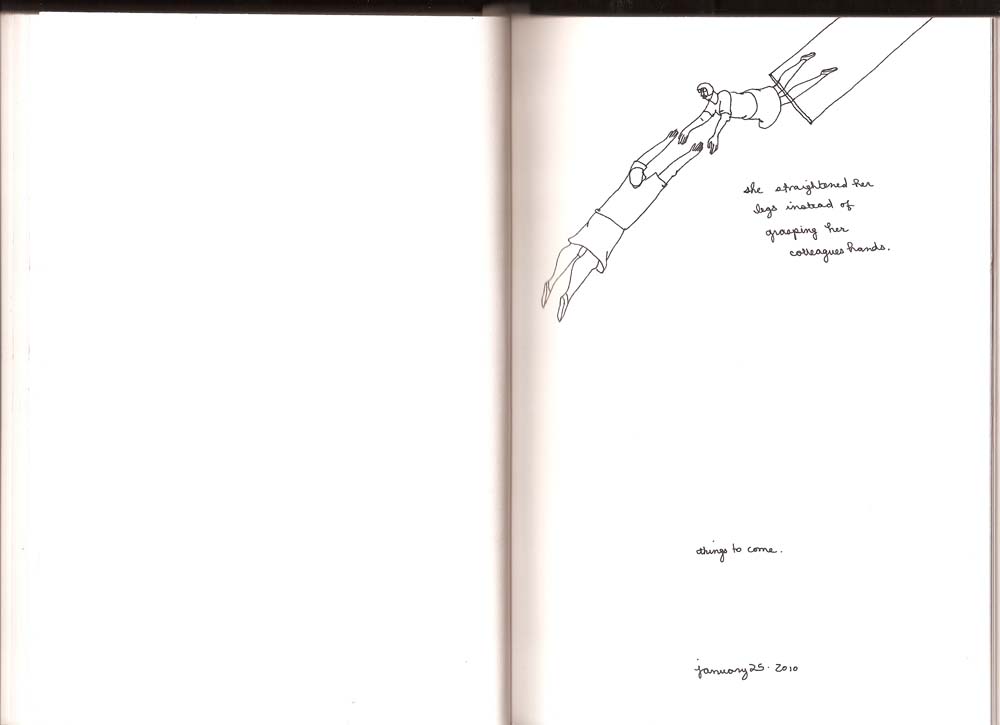 she straightened her
legs instead of
grasping her
colleagues hands.
things to come.
january 25. 2010